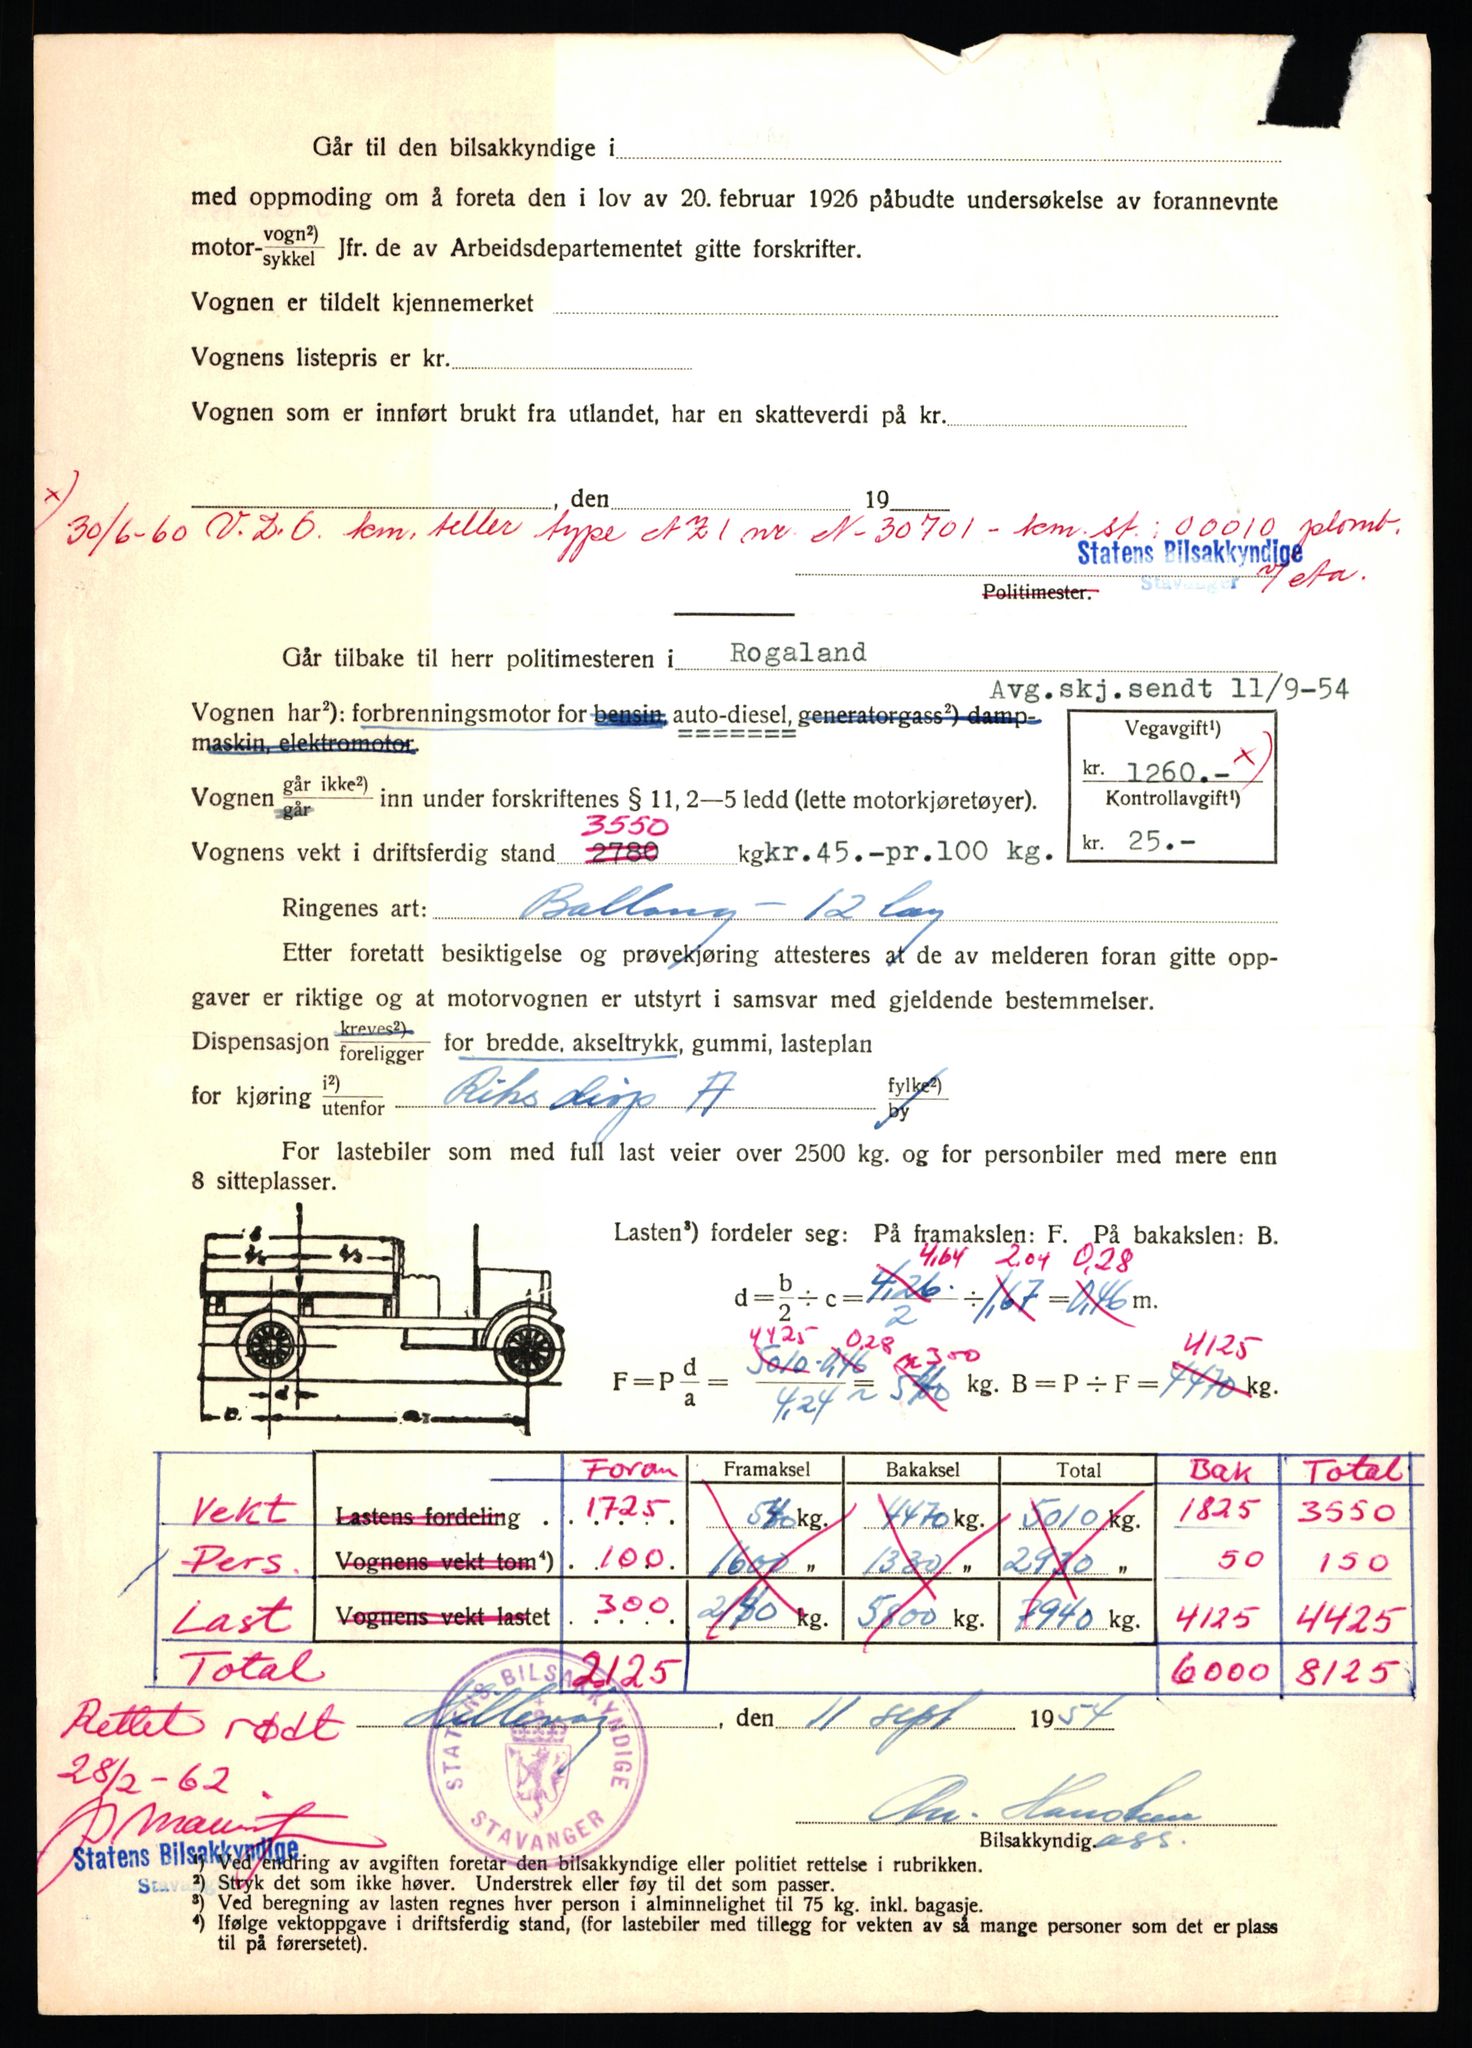 Går til den bilsakkyndige i
med oppmoding om å foreta den i lov av 20. februar 1926 påbudte undersøkelse av forannevnte
motor- vogn²) / sykkel Jfr. de av Arbeidsdepartementet gitte forskrifter.
Vognen er tildelt kjennemerket
Vognens listepris er kr.
Vognen som er innført brukt fra utlandet, har en skatteverdi på kr.
, den 19
x)
30/6-60 V.D.O. km. teller type NZ1 nr. N-30701 - km. st.: 00010 plomb.
Statens Bilsakkyndige
Stavanger
Politimester.
Går tilbake til herr politimesteren i Rogaland
Avg.skj.sendt 11/9-54
Vognen har²): forbrenningsmotor for bensin, auto-diesel, generatorgass²) damp-
maskin, elektromotor.
Vegavgift¹)
kr. 1260.- x)
Vognen går ikke²) / går inn under forskriftenes § 11, 2—5 ledd (lette motorkjøretøyer).
Kontrollavgift¹)
kr. 25.-
3550
Vognens vekt i driftsferdig stand 2780 kg kr.45.-pr.100 kg.
Ringenes art: Ballong - 12 lag
Etter foretatt besiktigelse og prøvekjøring attesteres at de av melderen foran gitte opp-
gaver er riktige og at motorvognen er utstyrt i samsvar med gjeldende bestemmelser.
Dispensasjon kreves²) / foreligger for bredde, akseltrykk, gummi, lasteplan
for kjøring i²) / utenfor Riksdisp A fylke²) / by
For lastebiler som med full last veier over 2500 kg. og for personbiler med mere enn
8 sitteplasser.
Lasten³) fordeler seg: På framakslen: F. På bakakslen: B.
4,64 2.04 0,28
d = b/2 ÷ c = 4,26/2 ÷ 1,67 = 0,46 m.
4425 0,28 ~300 4125
F = P d/a = 5010·0,46 / 4,24 = ~ 540 kg. B = P ÷ F = 4470 kg.
b
c d a
Foran Framaksel Bakaksel Total Bak Total
Vekt Lastens fordeling 1725 540 kg. 4470 kg. 5010 kg. 1825 3550
Pers. Vognens vekt tom⁴) 100 1600 „ 1330 „ 2930 „ 50 150
Last Vognens vekt lastet 300 2140 kg. 5800 kg. 7940 kg. 4125 4425
Total 2125 6000 8125
Rettet rødt Hillevåg, den 11 sept 1954
28/2-62
STATENS BILSAKKYNDIGE
STAVANGER
Bilsakkyndig ass.
Statens Bilsakkyndige
¹) Ved endring av avgiften foretar den bilsakkyndige eller politiet rettelse i rubrikken.
²) Stryk det som ikke høver. Understrek eller føy til det som passer.
³) Ved beregning av lasten regnes hver person i alminnelighet til 75 kg. inkl. bagasje.
⁴) Ifølge vektoppgave i driftsferdig stand, (for lastebiler med tillegg for vekten av så mange personer som det er plass
til på førersetet).